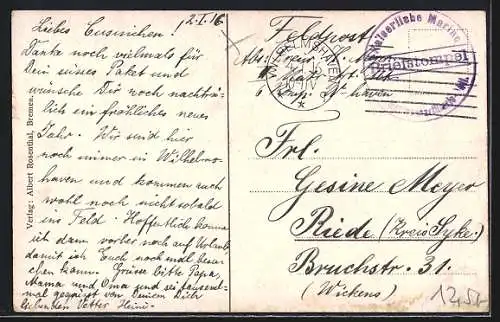 2.I.16
Liebes Cusinchen!
Danke noch vielmals für
Dein süsses Paket und
wünsche Dir noch nachträg-
lich ein fröhliches neues
Jahr. Wir sind hier
noch immer in Wilhelms-
haven und kommen auch
wohl noch nicht sobald
ins Feld. Hoffentlich komme
ich dann vorher noch auf Urlaub,
damit ich Euch noch mdl.
kann. Grüsse bitte Papa,
Mama und Oma und sei tausend-
mal gegrüsst von Deinem Dich
liebenden Vetter Heini.
Verlag: Albert Rosenthal, Bremen.
Feldpost
Abs.
WILHELMSHAVEN
Kaiserliche Marine
Briefstempel
Frl.
Gesine Meyer
Riede (Kreis Syke)
Bruchstr. 31.
(Wickens)